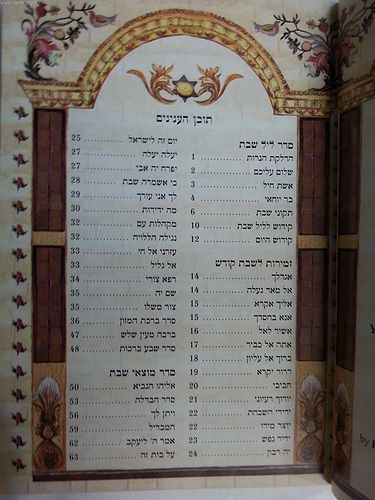 תוכן הענינים
סדר ליל שבת
הדלקת הנרות ........ 1
שלום עליכם ........ 2
אשת חיל ........ 3
בר יוחאי ........ 4
תקוני שבת ........ 6
קידוש לליל שבת ........ 10
קידוש היום ........ 12
זמירות לשבת קודש
אגדלך ........ 14
אל מאד נעלה ........ 14
אליך אקרא ........ 15
אנא בחסדך ........ 15
אשיר לאל ........ 16
אתה אל כביר ........ 17
ברוך אל עליון ........ 18
דרור יקרא ........ 19
חביבי ........ 20
יודוך רעיוני ........ 21
ידידי השכחת ........ 22
יוצר מידו ........ 22
ידיד נפש ........ 23
יה רבון ........ 24
יום זה לישראל ........ 25
יעלה יעלה ........ 27
יפרח יה אבי ........ 27
כי אשמרה שבת ........ 28
לך אני עורך ........ 29
מה ידידות ........ 30
מקהלות עם ........ 32
נגילה הללויה ........ 32
עזרני אל חי ........ 33
אל גליל ........ 33
רפא צורי ........ 34
שם יה ........ 35
צור משלו ........ 35
סדר ברכת המזון ........ 36
ברכה מעין שלש ........ 47
סדר שבע ברכות ........ 48
סדר מוצאי שבת
אליהו הנביא ........ 50
סדר הבדלה ........ 53
ויתן לך ........ 56
המבדיל ........ 59
אמר ה' ליעקב ........ 62
על בית זה ........ 63